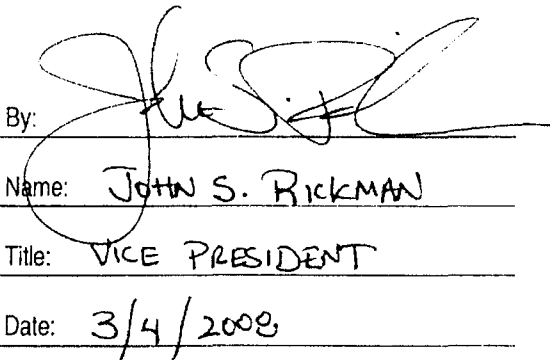 By:
Name: JOHN S. RICKMAN
Title: VICE PRESIDENT
Date: 3/4/2008